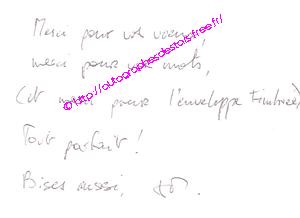 Merci pour vos vœux,
merci pour vos mots,
(et merci pour l'enveloppe timbrée)
Tout parfait !
Bises aussi,
© http://autographesdestoils.free.fr/